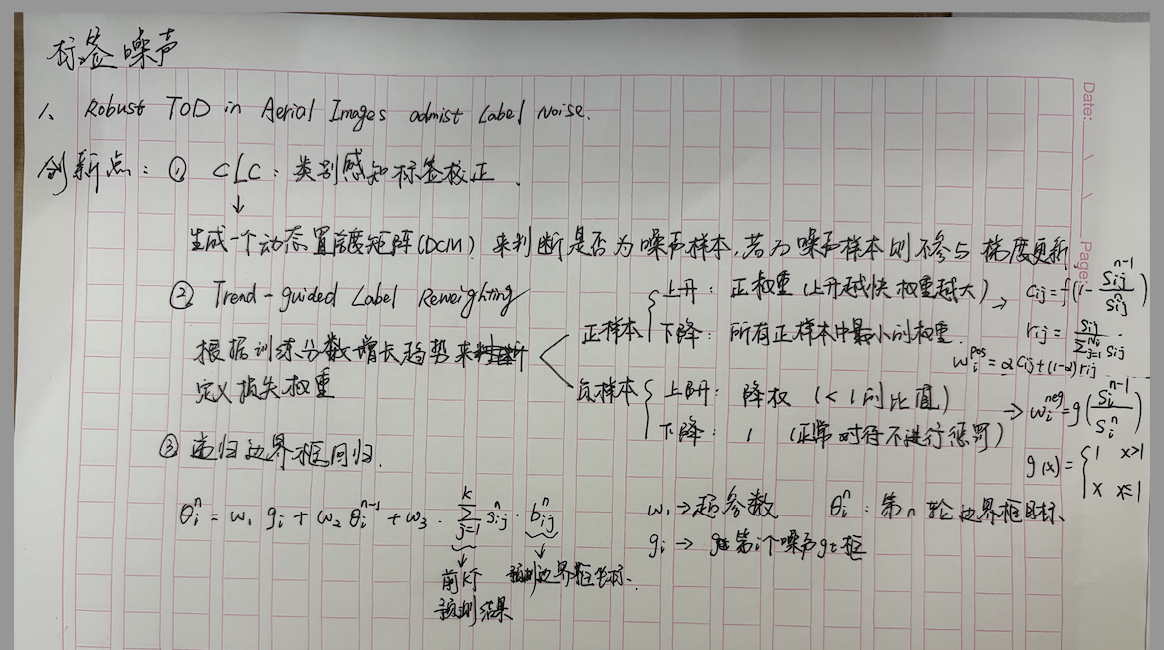 标签噪声
1、Robust TOD in Aerial Images admist Label Noise.
创新点：① CLC：类别感知标签校正.
↓
生成一个动态置信度矩阵(DCM) 来判断是否为噪声样本,若为噪声样本则不参与梯度更新
② Trend-guided Label Reweighting
根据训练分数增长趋势来
定义损失权重
正样本 { 上升：正权重（上升越快 权重越大）→ Cij=f(1-Sij^{n-1}/Sij^n)
下降：所有正样本中最小的权重. rij=Sij/∑_{j=1}^{Ni} Sij
wi^{pos}=αCij+(1-α)rij
负样本 { 上升：降权（<1的比值）→ wi^{neg}=g(Si^{n-1}/Si^n)
下降：1（正常对待不进行惩罚）
g(x)={ 1 x>1
x x≤1
③ 递归边界框回归.
θi^n = w1 gi + w2 θi^{n-1} + w3 · ∑_{j=1}^{K} sij^n · bij^n
↓ 前K个
预测结果
↓ 预测边界框坐标.
w1→超参数 θi^n：第n轮边界框目标、
gi → 第i个噪声gt框
Date:
Page: